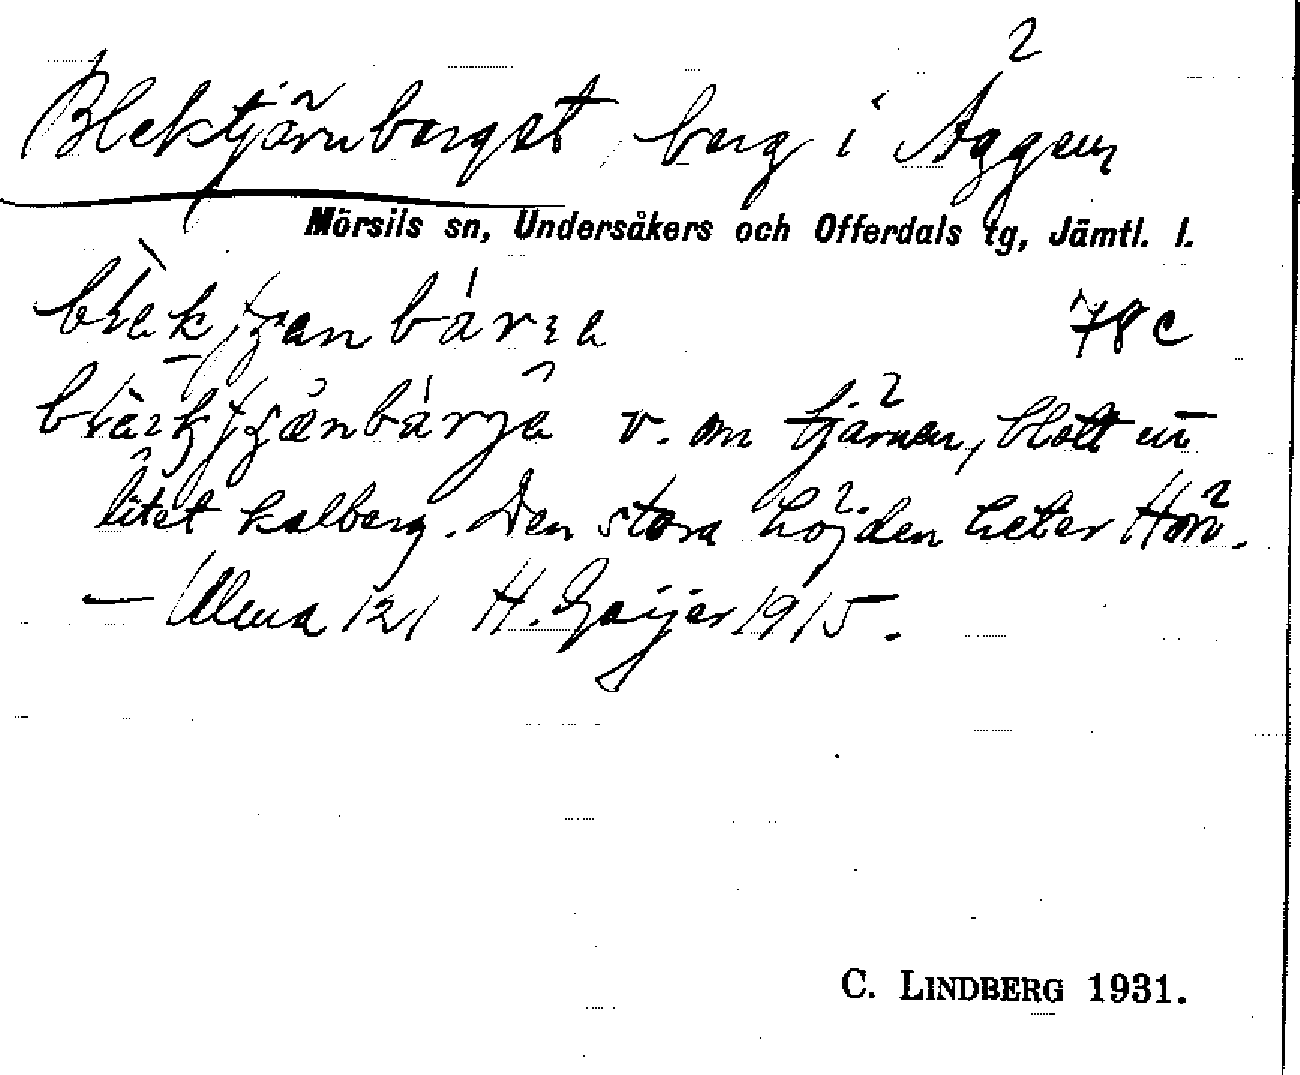 Blektjärnberget, berg i Äggen
Mörsils sn, Undersåkers och Offerdals tg, Jämtl. l.
78 c
v. om tjärnen, blott ett
litet kalberg. Den stora höjden heter
— Ulma 121 H. Geijer 1915.
C. LINDBERG 1931.